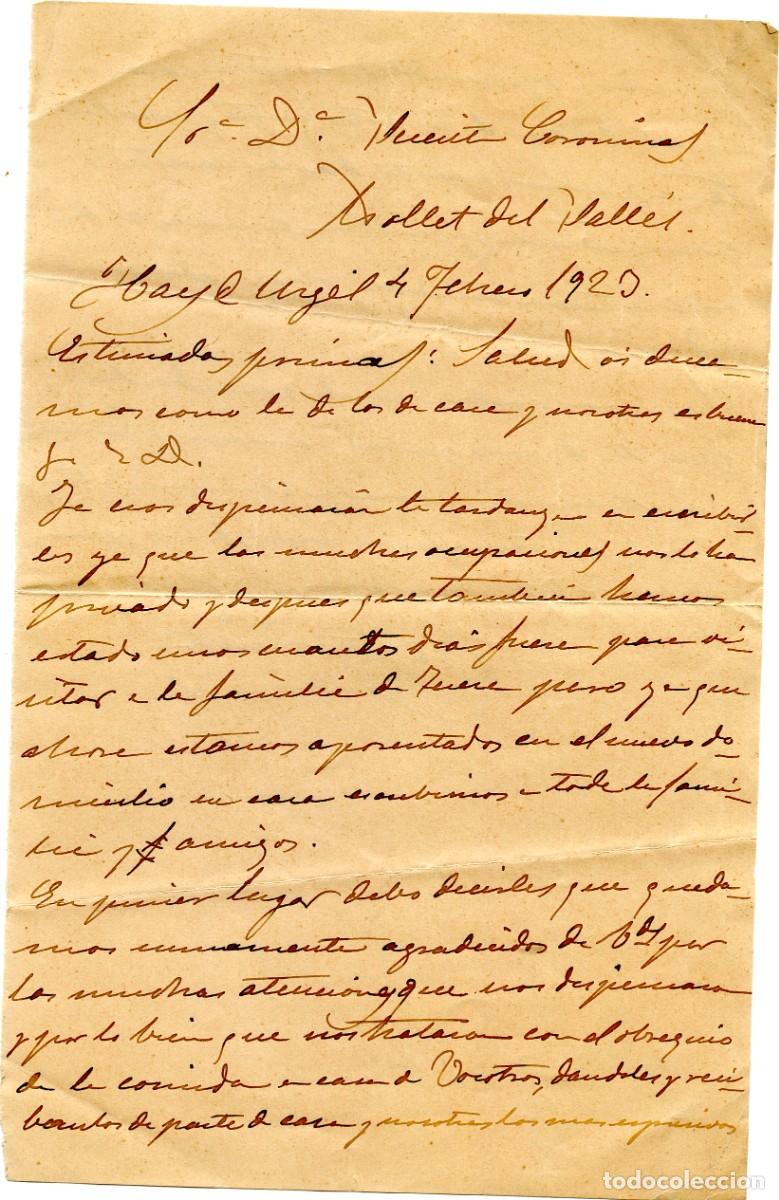 Sra. Da. Vicenta Corominas
Mollet del Vallés.
Urgel 4 Febrero 1923.
Estimadas primas: Salud os desea-
mos como la de los de casa y nosotros es buena
g. a D.
Ya nos dispensarán la tardanza en escribir-
les ya que las muchas ocupaciones nos lo ha
privado y despues que tambien hemos
estado unos cuantos dias fuera para vi-
sitar a la familia de fuera pero ya que
ahora estamos aposentados en el nuevo do-
micilio en casa escribimos a toda la fami-
lia y amigos.
En primer lugar debo decirles que queda-
mos sumamente agradecidos de Vds por
las muchas atenciones que nos dispensaron
y por lo bien que nos trataron con el obsequio
de la comida en casa de Vosotros, dandoles y reci-
banlos de parte de casa y nosotros los mas expresivos
todocoleccion